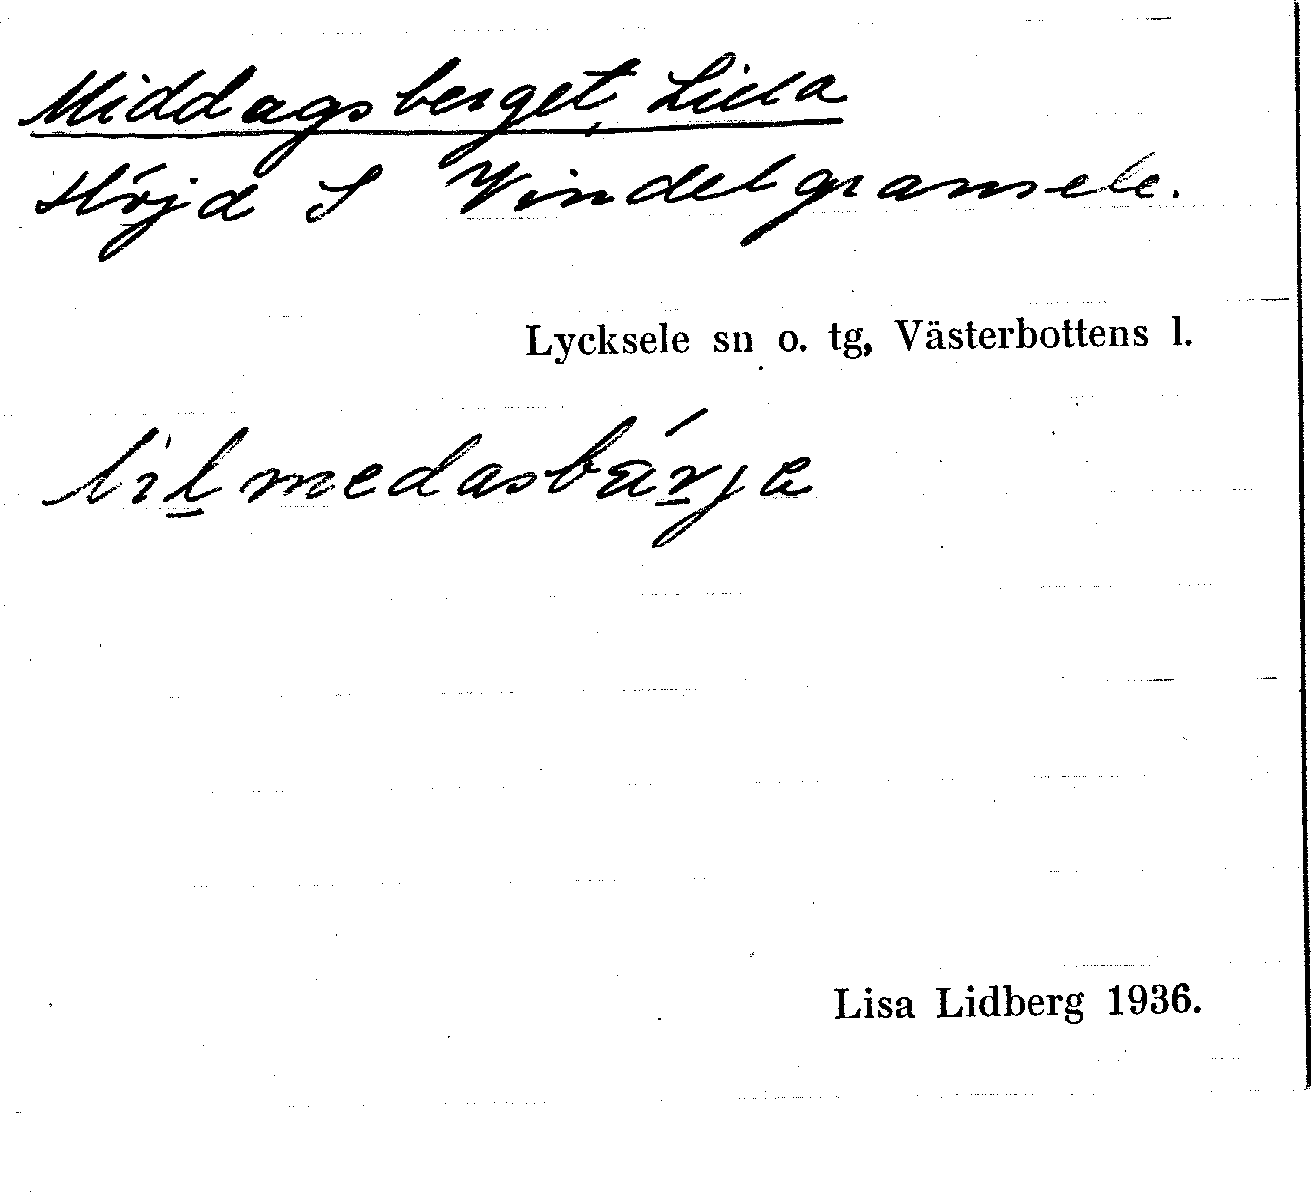 Middagsberget, Lilla
Höjd S Vindelgransele.
Lycksele sn o. tg, Västerbottens l.
Lisa Lidberg 1936.